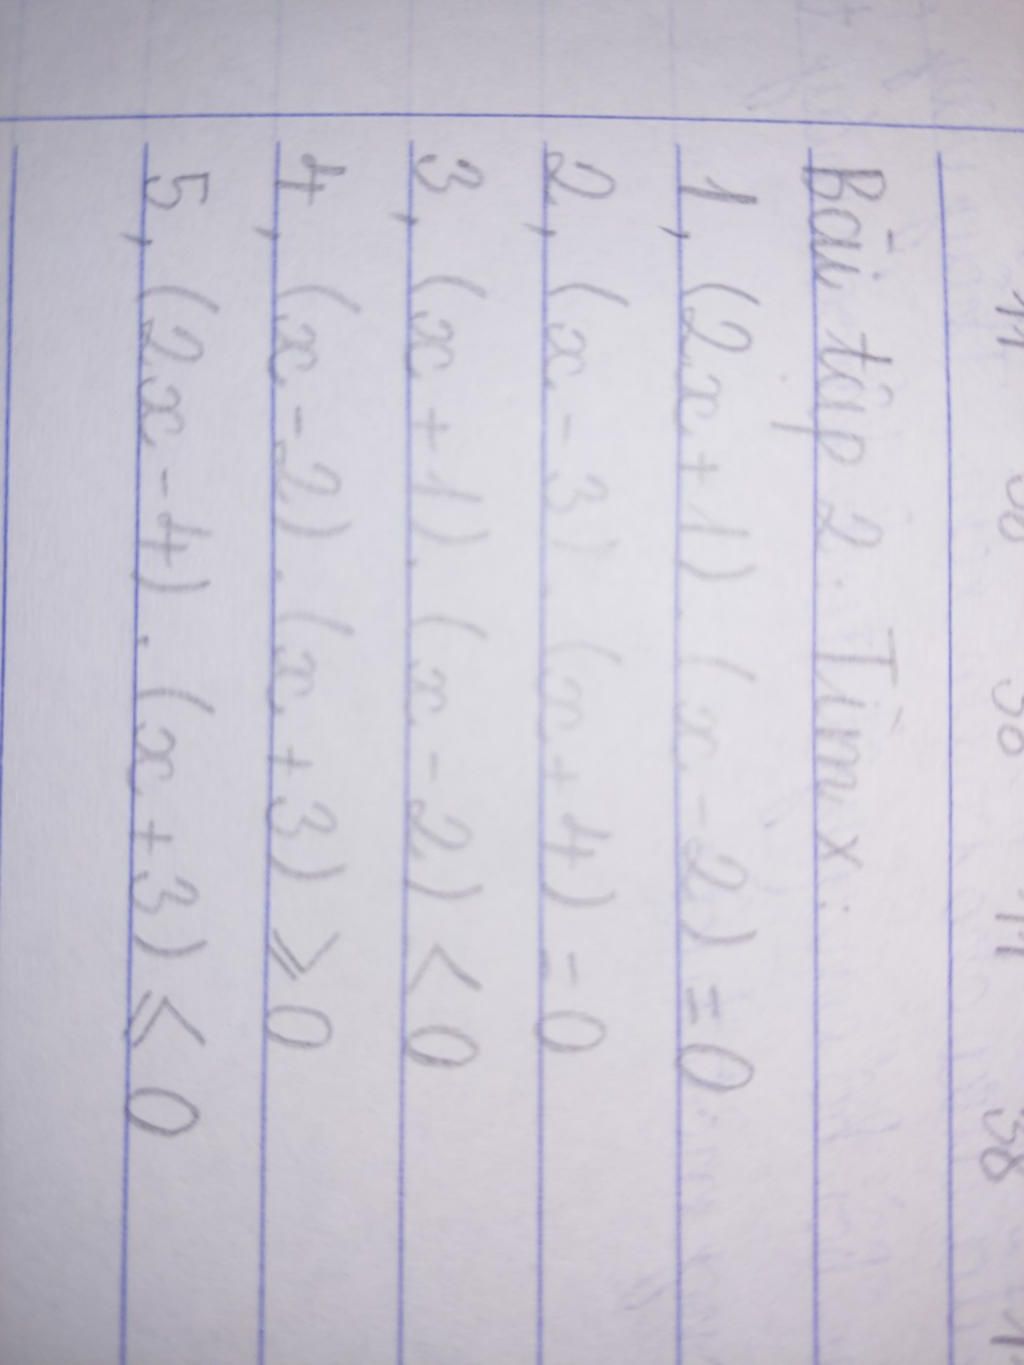 Bài tập 2. Tìm x:
1, (2x+1).(x-2)=0
2, (x-3).(x+4)=0
3, (x+1).(x-2)<0
4, (x-2).(x+3)⩾0
5, (2x-4).(x+3)⩽0